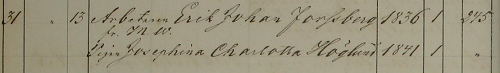 31 " 13 Arbetaren Erik Johan Forssberg 1836 1 245
fr. N. W.
Pigan Josephina Charlotta Höglund 1841 1 "